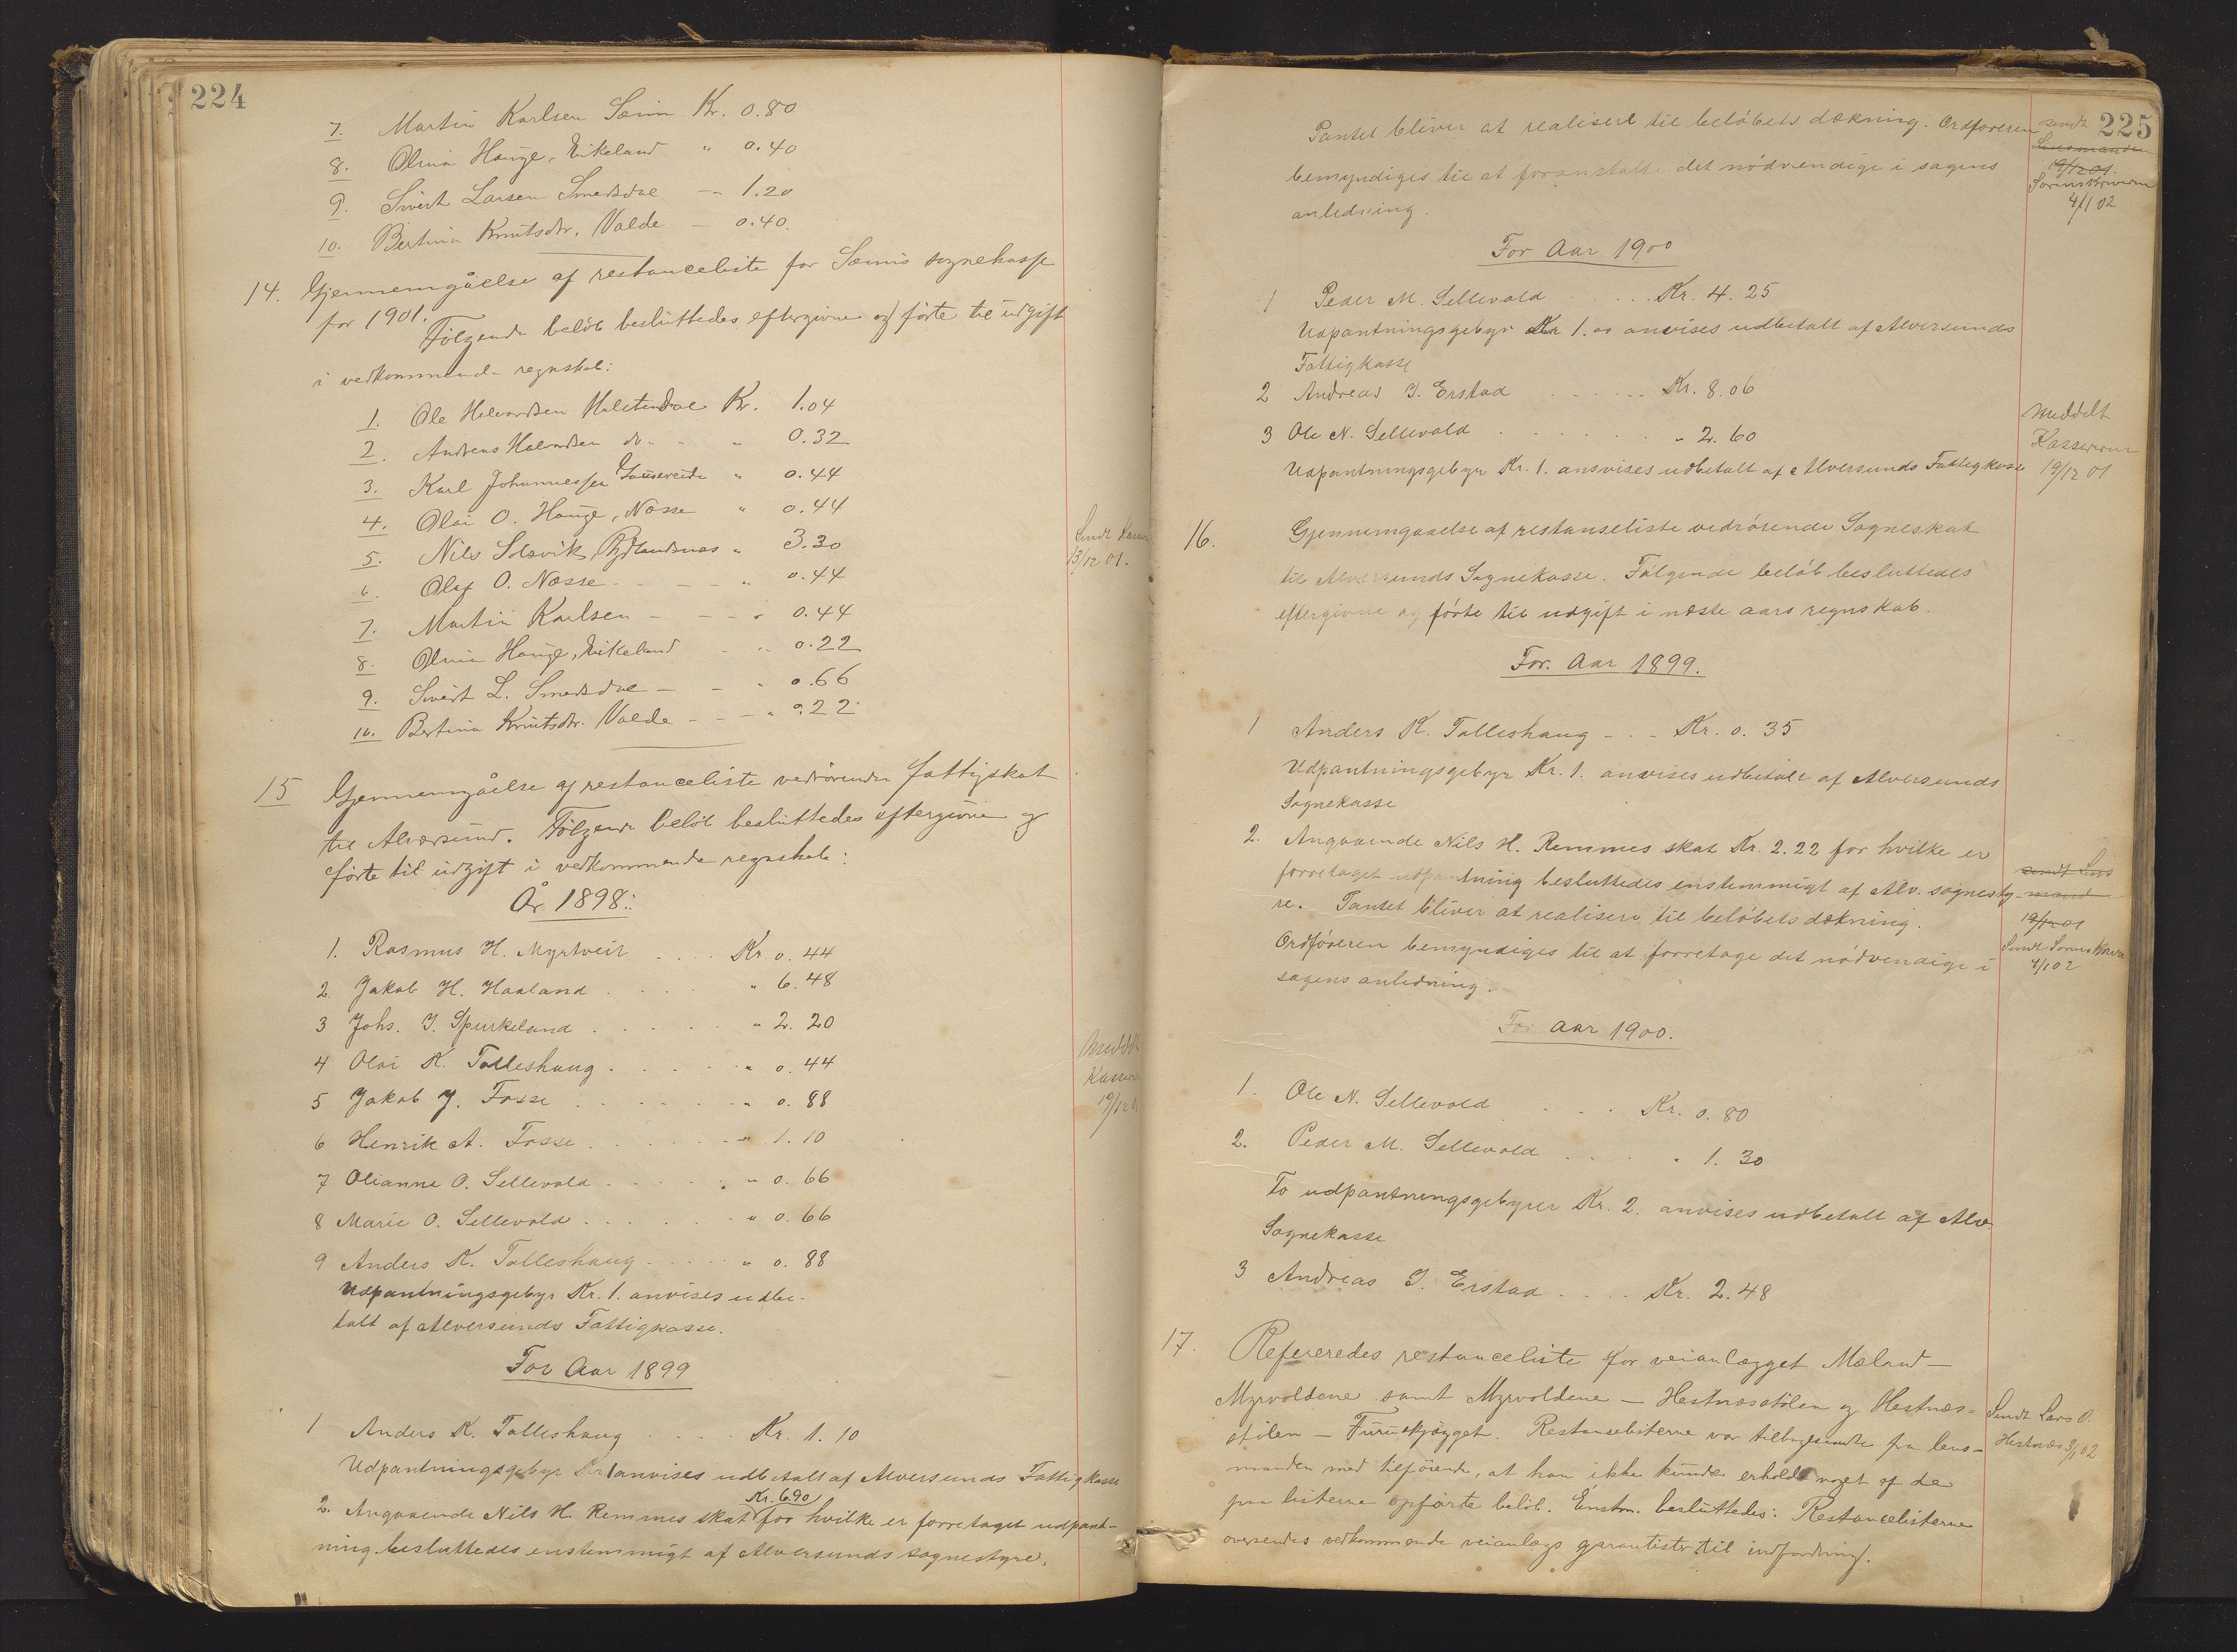 224
7. Martin Karlsen Sæim Kr. 0.80
8. Olina Hauge, Eikeland " 0.40
9. Sivert Larsen Smedsdal — 1.20
10. Bertina Knutsdtr. Valde — 0.40.
14. Gjennemgåelse af restanceliste for Sæims sognekasse
for 1901.
Følgende beløb besluttedes eftergivne og førte til udgift
i vedkommende regnskab:
1. Ole Halvardsen Halstendal Kr. 1.04
2. Andreas Halvardsen do - - " 0.32
3. Karl Johannessen " 0.44
4. Olai O. Hauge, Næsse " 0.44
5. Nils Solsvik, Rydlandsnæs " 3.30
6. Olaf O. Næsse - - - " 0.44
7. Martin Karlsen - - - " 0.44
8. Olina Hauge, Eikeland - " 0.22
9. Sivert L. Smedsdal - - " 0.66
10. Bertina Knutsdtr. Valde - - - " 0.22
Sendt
13/12 01.
15 Gjennemgåelse af restanceliste vedrørende fattigskat
til Alversund. Følgende beløb besluttedes eftergivne og
førte til udgift i vedkommende regnskab:
År 1898:
1. Rasmus H. Myrtveit . . . . Kr. 0.44
2. Jakob H. Haaland . . . . " 6.48
3 Johs. J. Spurkeland . . . . . " 2.20
4 Olai K. Tolleshaug . . . . . " 0.44
5 Jakob J. Fosse . . . . . . " 0.88
6 Henrik A. Fosse . . . . . . " 1.10
7 Olianna O. Sellevold . . . . . " 0.66
8 Marie O. Sellevold . . . . . . " 0.66
9 Anders K. Tolleshaug . . . . " 0.88
Udpantningsgebyr Kr. 1. anvises udbe-
talt af Alversunds Fattigkasse.
Meddelt
19/12 01
For Aar 1899
1 Anders K. Tolleshaug . . . . Kr. 1.10
Udpantningsgebyr Kr 1 anvises udbetalt af Alversunds Fattigkasse
Kr. 6.90
2. Angaaende Nils H. Remmes skat for hvilke er forretaget udpant-
ning besluttedes enstemmigt af Alversunds sognestyre.
225
Pantet bliver at realisere til beløbets dækning. Ordføreren
bemyndiges til at foranstalte det nødvendige i sagens
anledning.
sendt
Lensmanden
19/12 01.
Sorenskriveren
4/1 02
For Aar 1900
1 Peder M. Sellevold . . . . Kr. 4.25
Udpantningsgebyr Kr 1.00 anvises udbetalt af Alversunds
Fattigkasse
2 Andreas J. Erstad . . . . . . Kr. 8.06
3 Ole N. Sellevold . . . . . . " 2.60
Udpantningsgebyr Kr. 1. ansvises udbetalt af Alversunds Fattigkasse
Meddelt
Kassereren
19/12 01
16. Gjennemgaaelse af restanseliste vedrørende Sogneskat
til Alversunds Sognekasse. Følgende beløb besluttedes
eftergivne og førte til udgift i næste aars regnskab.
For. Aar 1899.
1 Anders K. Tolleshaug - . - Kr. 0.35
Udpantningsgebyr Kr. 1. anvises udbetalt af Alversunds
Sognekasse
2. Angaaende Nils H. Remmes skat Kr. 2.22 for hvilke er
forretaget udpantning besluttedes enstemmigt af Alv. sognesty-
re. Pantet bliver at realisere til beløbets dækning.
Ordføreren bemyndiges til at forretage det nødvendige i
sagens anledning.
sendt Lens
mand
19/12 01
Sendt Sorenskriver
4/1 02
For Aar 1900.
1. Ole N. Sellevold . . . Kr. 0.80
2. Peder M. Sellevold . . . . " 1.30
To udpantningsgebyrer Kr. 2. anvises udbetalt af Alv.
Sognekasse
3 Andreas J. Erstad . . . . Kr. 2.48
17. Refereredes restanceliste for veianlægget Mæland —
Myrvoldene samt Myrvoldene — Hestnæsstølen og Hestnæs-
stølen — Furuskjægget. Restancelisterne var tilbagesendte fra lens-
manden med tilførende, at han ikke kunde erholde noget af de
paa listerne opførte beløb. Enstm. besluttedes: Restancelisterne
oversendes vedkommende veianlægs garantister til indfordring.
Sendt Lars O.
Hestnæs 3/1 02